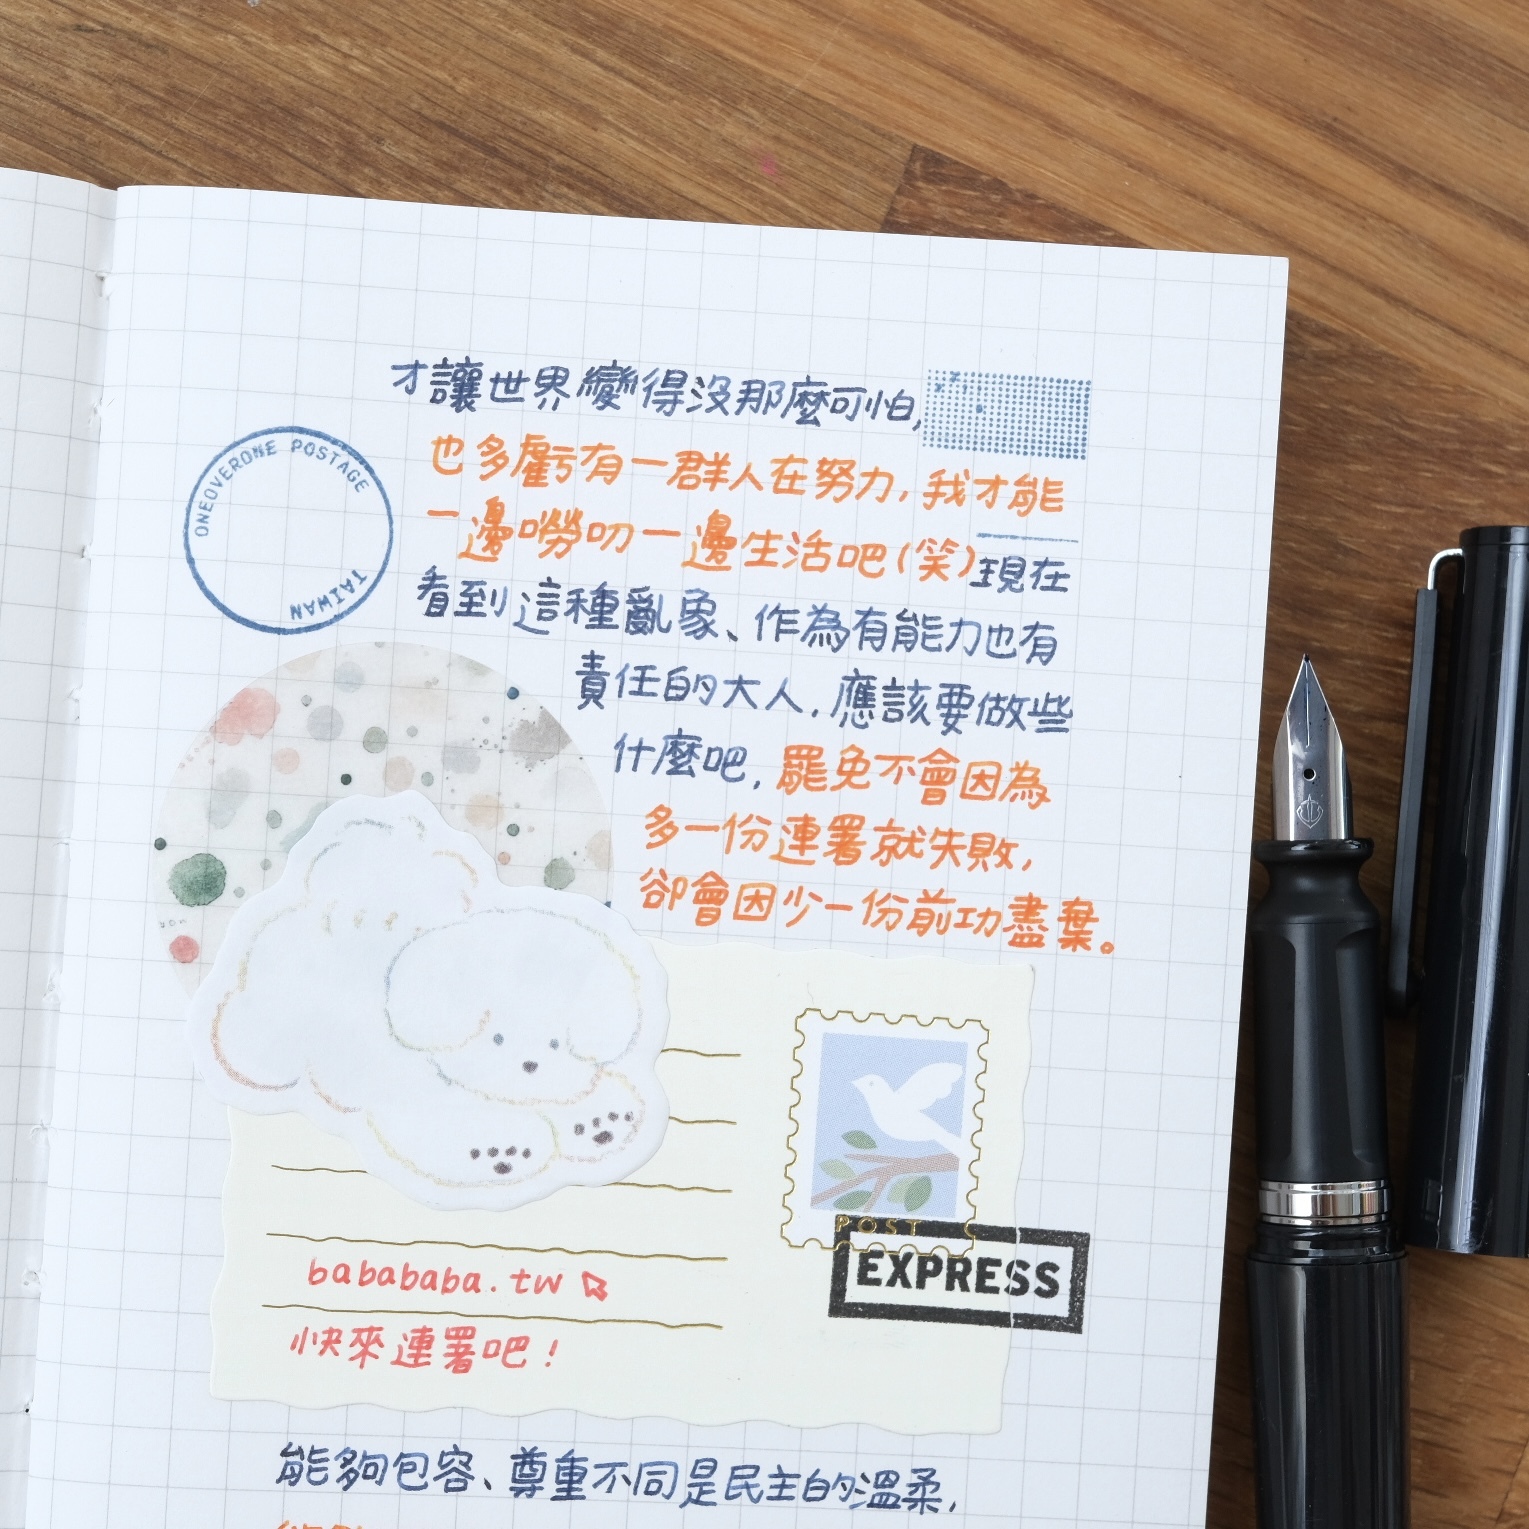 才讓世界變得沒那麼可怕,
也多虧有一群人在努力,我才能
一邊嘮叨一邊生活吧(笑)現在
看到這種亂象、作為有能力也有
責任的大人,應該要做些
什麼吧,罷免不會因為
多一份連署就失敗,
卻會因少一份前功盡棄。
ONEOVERONE POSTAGE
TAIWAN
POST
EXPRESS
babababa.tw
快來連署吧!
能夠包容、尊重不同是民主的溫柔,